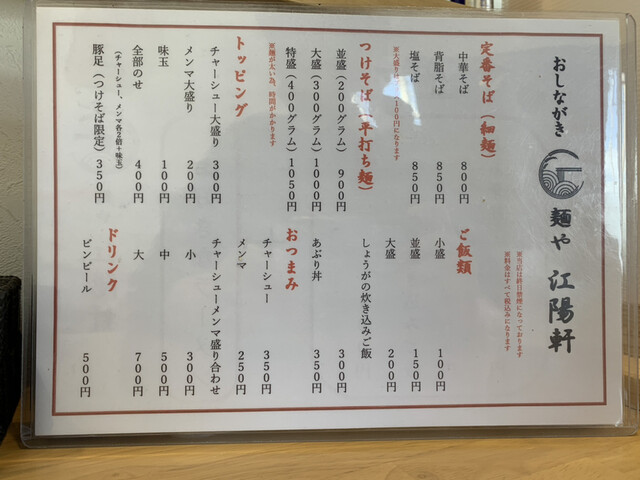 おしながき
麺や 江陽軒
※当店は終日禁煙になっております
※料金はすべて税込みになります
定番そば（細麺）
中華そば 800円
背脂そば 850円
塩そば 850円
※大盛りは、＋100円になります
つけそば（平打ち麺）
並盛（200グラム） 900円
大盛（300グラム） 1000円
特盛（400グラム） 1050円
※麺が太い為、時間がかかります
トッピング
チャーシュー大盛り 300円
メンマ大盛り 200円
味玉 100円
全部のせ 400円
（チャーシュー、メンマ各2倍＋味玉）
豚足（つけそば限定） 350円
ご飯類
小盛 100円
並盛 150円
大盛 200円
しょうがの炊き込みご飯 300円
あぶり丼 350円
おつまみ
チャーシュー 350円
メンマ 250円
チャーシューメンマ盛り合わせ
小 300円
中 500円
大 700円
ドリンク
ビンビール 500円